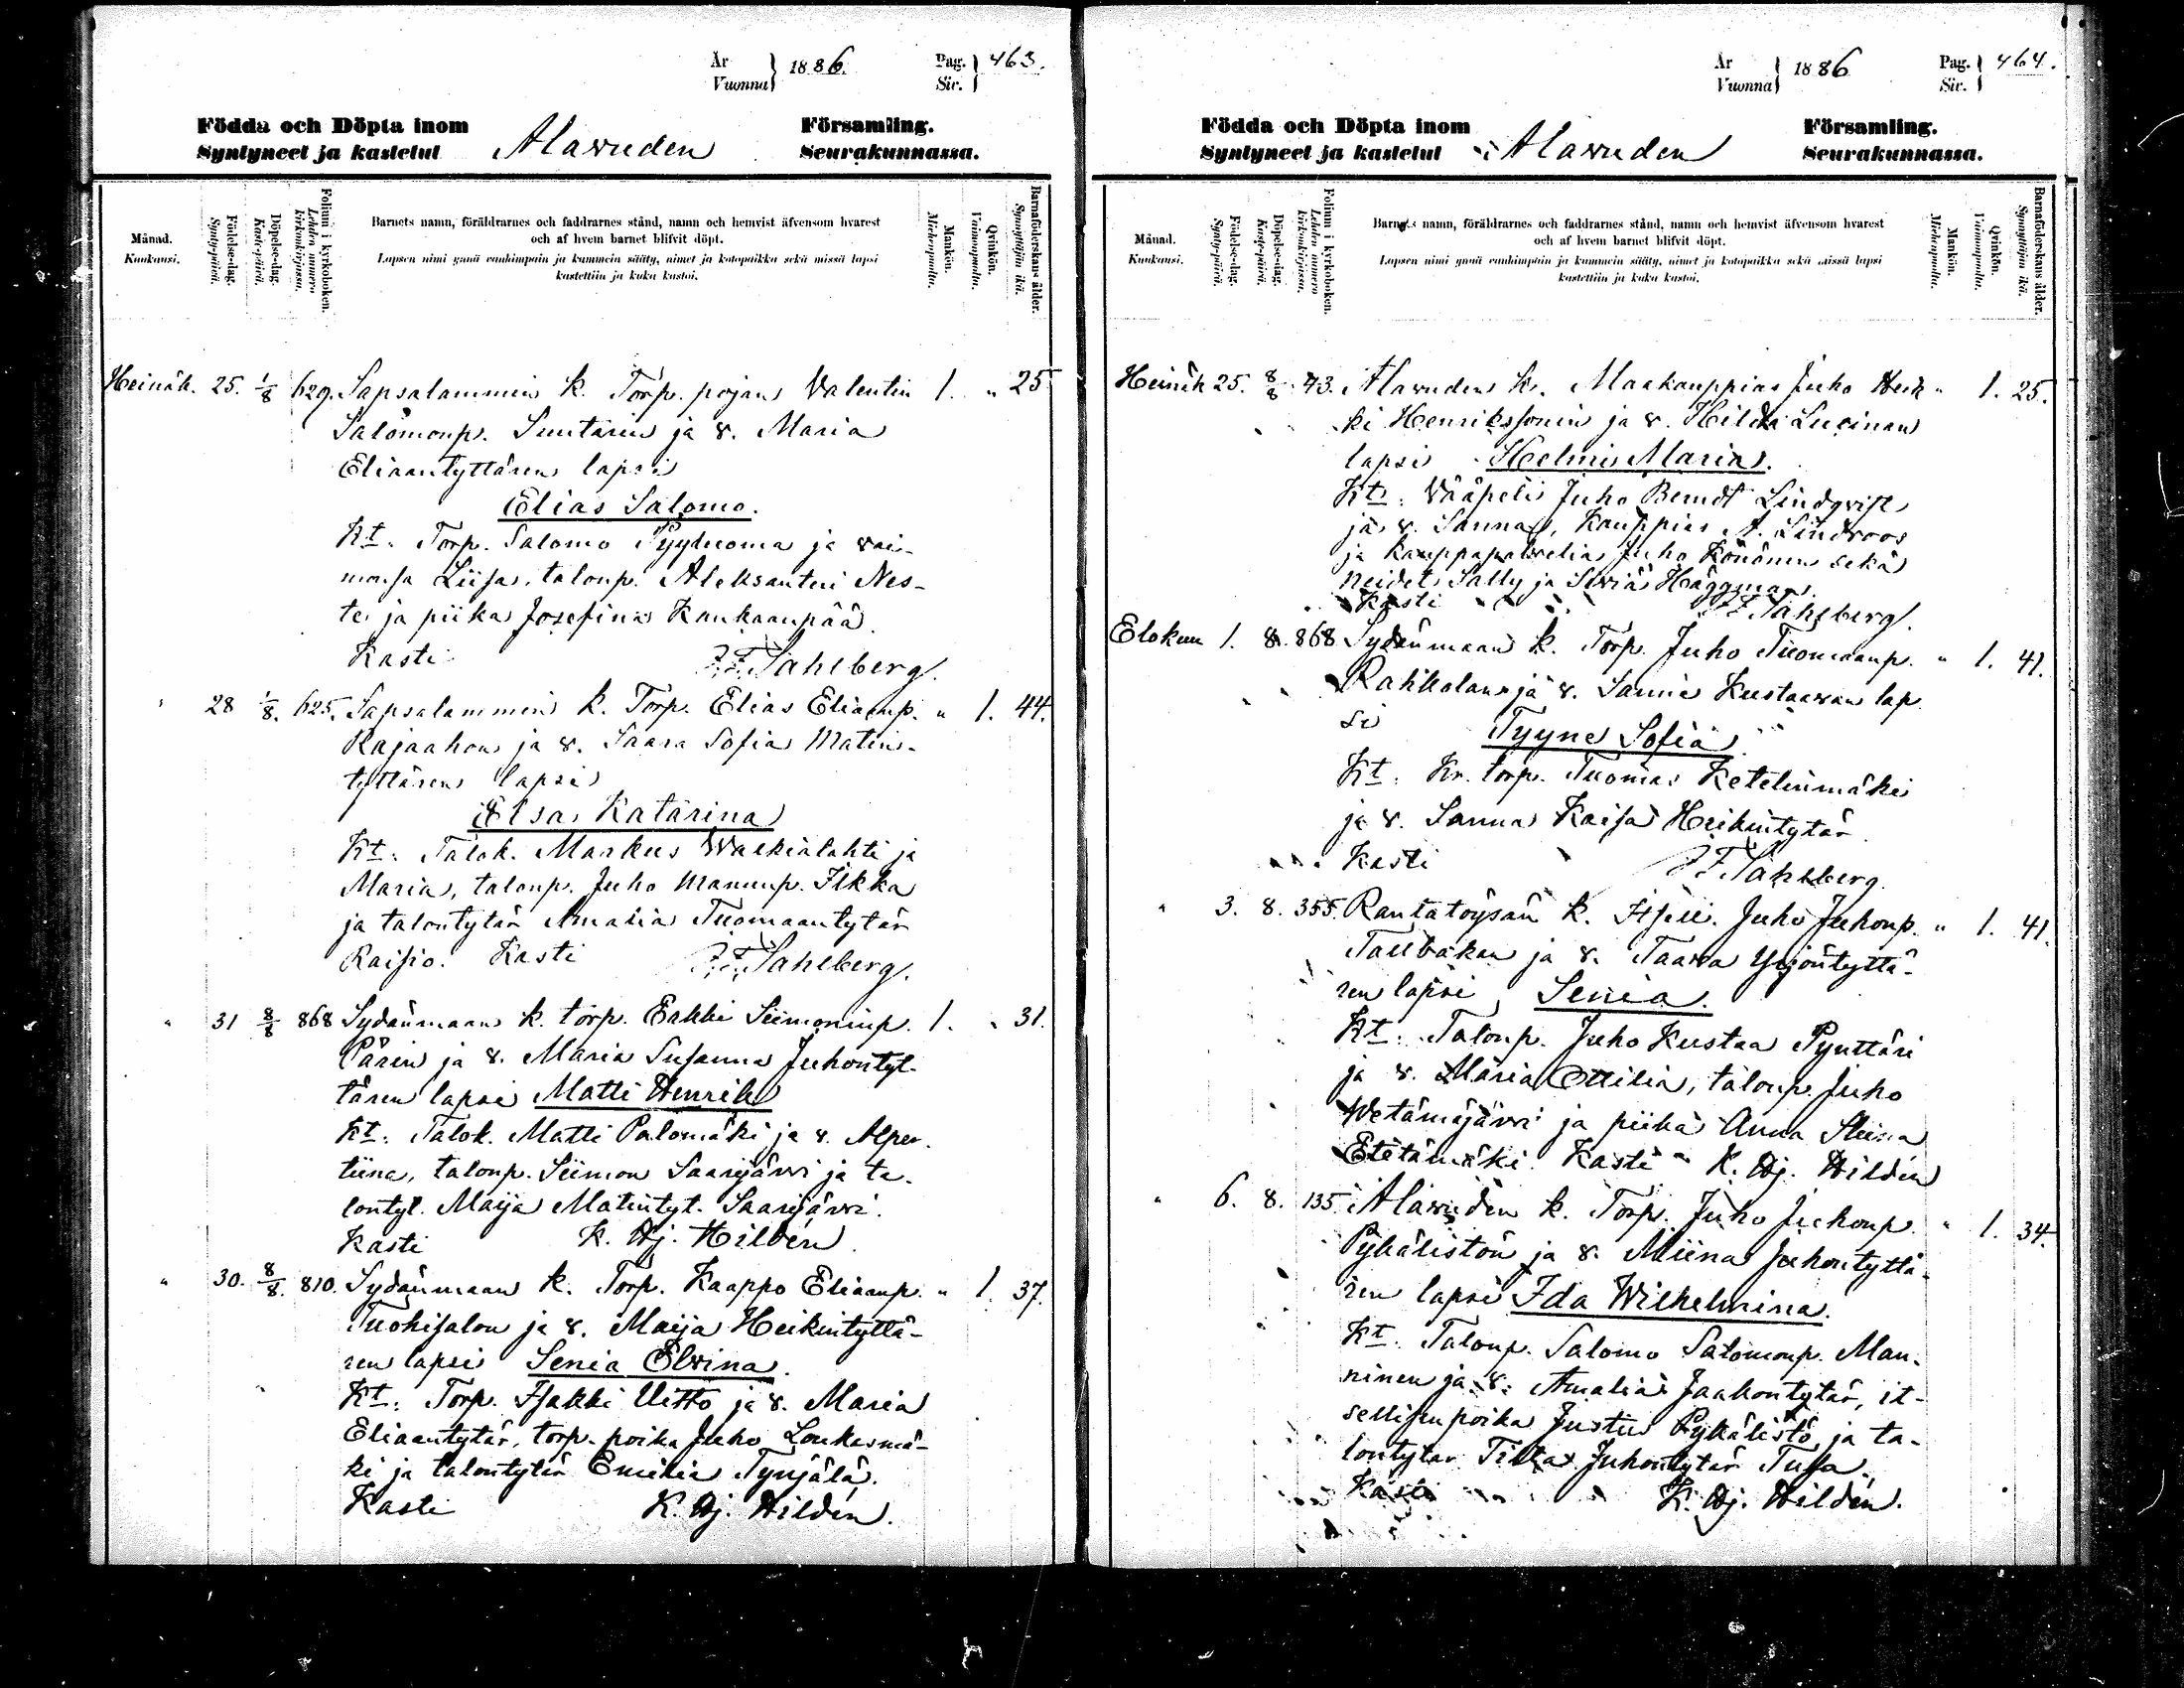 År
Vuonna } 1886.
Pag.
Sir. } 463.
Födda och Döpta inom Församling.
Syntyneet ja kastetut Alavuden Seurakunnassa.
Månad.
Kuukausi.
Födelse-dag.
Synty-päivä.
Döpelse-dag.
Kaste-päivä.
Folium i kyrkoboken.
Lehden numero kirkonkirjassa.
Barnets namn, föräldrarnes och faddrarnes stånd, namn och hemvist äfvensom hvarest
och af hvem barnet blifvit döpt.
Lapsen nimi ynnä vanhimpain ja kummein sääty, nimet ja kotopaikka sekä missä lapsi
kastettiin ja kuka kastoi.
Mankön.
Miehenpuolta.
Qvinkön.
Vaimonpuolta.
Barnaföderskans ålder.
Synnyttäjän ikä.
Heinäk. 25. 1/8 629. Sapsalammin k. Torp. pojan Valentin 1. " 25
Salomonp. Suutarin ja v. Maria
Eliaantyttären lapsi
Elias Salomo.
Kt. Torp. Salomo Pyyluoma ja vai-
monsa Liisa, talonp. Aleksanteri Nes-
te ja piika Josefina Kankaanpää.
Kasti J. F. Sahlberg.
" 28 1/8. 625. Sapsalammin k. Torp. Elias Eliaanp. " 1. 44.
Rajaahon ja v. Saara Sofia Matin-
tyttären lapsi
Elsa Katarina
Kt. Talok. Markus Walkialahti ja
Maria, talonp. Juho Manunp. Ilkka
ja talontytär Amalia Tuomaantytär
Raisio. Kasti J. F. Sahlberg.
" 31 8/8 868 Sydänmaan k. torp. Erkki Siimoninp. 1. " 31.
Pärin ja v. Maria Susanna Juhontyt-
tären lapsi Matti Henrik
Kt. Talok. Matti Palomäki ja v. Alper-
tiina, talonp. Siimon Saarijärvi ja ta-
lontyt. Maija Matintyt. Saarijärvi.
Kasti K. Hj. Hildén
" 30. 8/8. 810. Sydänmaan k. Torp. Kaappo Eliaanp. " 1. 37.
Tuohisalon ja v. Maija Heikintyttä-
ren lapsi Senia Elvina.
Kt. Torp. Isakki Uitto ja v. Maria
Eliaantytär, torp. poika Juho Loukasmä-
ki ja talontytär Emilia Tynjälä.
Kasti K. Hj. Hildén.
År
Vuonna } 1886
Pag.
Sir. } 464.
Födda och Döpta inom Församling.
Syntyneet ja kastetut Alavuden Seurakunnassa.
Månad.
Kuukausi.
Födelse-dag.
Synty-päivä.
Döpelse-dag.
Kaste-päivä.
Folium i kyrkoboken.
Lehden numero kirkonkirjassa.
Barnets namn, föräldrarnes och faddrarnes stånd, namn och hemvist äfvensom hvarest
och af hvem barnet blifvit döpt.
Lapsen nimi ynnä vanhimpain ja kummein sääty, nimet ja kotopaikka sekä missä lapsi
kastettiin ja kuka kastoi.
Mankön.
Miehenpuolta.
Qvinkön.
Vaimonpuolta.
Barnaföderskans ålder.
Synnyttäjän ikä.
Heinäk 25. 8/8 43. Alavuden k. Maakauppias Juho Heik " 1. 25.
ki Henrikssonin ja v. Hilda Lucinan
lapsi Helmi Maria.
Kt. Wääpeli Juho Berndt Lindqvist
ja v. Sanna, Kauppias A. Lindroos
ja kauppapalvelia Juho Könönen sekä
neidet Sally ja Siviä Häggman.
Kasti J. F. Sahlberg.
Elokuu 1. 8. 868 Sydänmaan k. Torp. Juho Tuomaanp. " 1. 41.
Rahkolan ja v. Sanna Kustaavan lap
si Tyyne Sofia
Kt. Kr. torp. Tuomas Ketelinmäki
ja v. Sanna Kaisa Heikintytär
Kasti J. F. Sahlberg.
" 3. 8. 355. Rantatöysän k. Itsell. Juho Juhonp. " 1. 41.
Tallbakan ja v. Taava Yrjöntyttä-
ren lapsi Senia.
Kt. Talonp. Juho Kustaa Pynttäri
ja v. Maria Ottilia, talonp. Juho
Wetämäjärvi ja piika Anna Stiina
Etelämäki. Kasti K. Hj. Hildén
" 6. 8. 135. Alavuden k. Torp. Juho Juhonp. " 1. 34.
Pykälistön ja v. Miina Juhontyttä-
ren lapsi Ida Wilhelmina.
Kt. Talonp. Salomo Salomonp. Man-
ninen ja v. Amalia Jaakontytär, it-
sellisenpoika Justus Pykälistö ja ta-
lontytär Tilta Juhontytär Tusa.
Kasti K. Hj. Hildén.